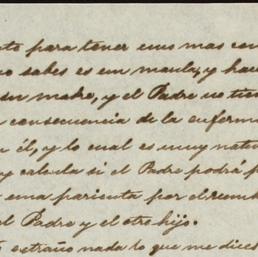 to para tener unos mas con
o sabes es un maula, y hac
su madre, y el Padre no tien
consecuencia de la enferm
él, y lo cual es muy natu
y calcula si el Padre podrá p
una parienta por el rumb
el Padre y el otro hijo.
extraño nada lo que me dices